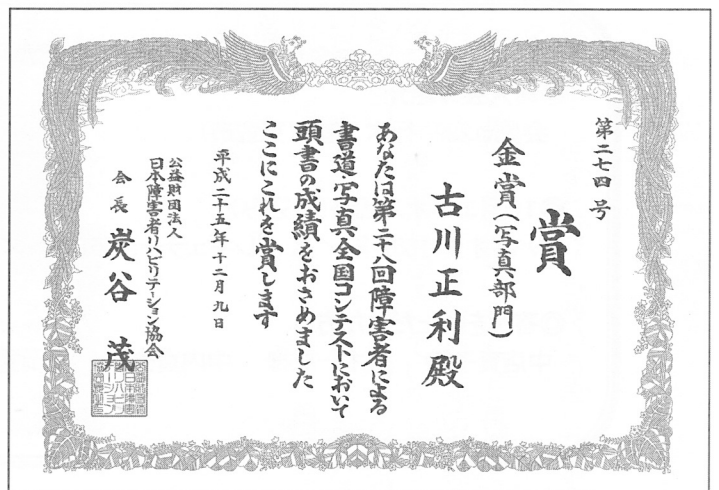 第二七四号
賞
金賞(写真部門)
古川正利殿
あなたは第二十八回障害者による
書道・写真全国コンテストにおいて
頭書の成績をおさめました
ここにこれを賞します
平成二十五年十二月九日
公益財団法人
日本障害者リハビリテーション協会
会長 炭谷 茂